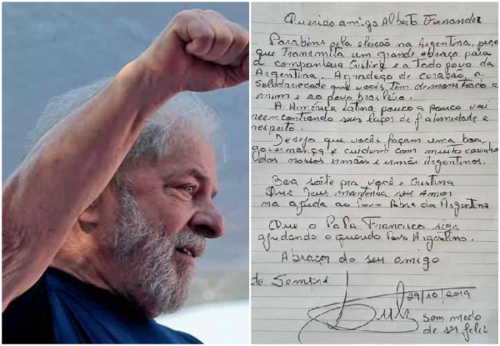 Querido amigo Alberto Fernandez
Parabéns pela eleição na Argentina, peço
que transmita um grande abraço para
a companheira Cristina e a todo povo da
Argentina. Agradeço de coração a
Solidariedade que vocês têm demonstrado a
mim e ao povo brasileiro.
A América Latina pouco a pouco vai
reencontrando seus laços de fraternidade e
respeito.
Desejo que vocês façam uma boa
governança e cuidem com muito carinho
dos nossos irmãos e irmãs Argentinos.
Boa sorte pra você e Cristina
Que Deus mantenha seu
na ajuda ao Povo Pobre da Argentina
Que o Papa Francisco siga
ajudando o querido Povo Argentino.
Abraços do seu amigo
de Sempre
29/10/2019
Lula
Sem medo
de ser feliz